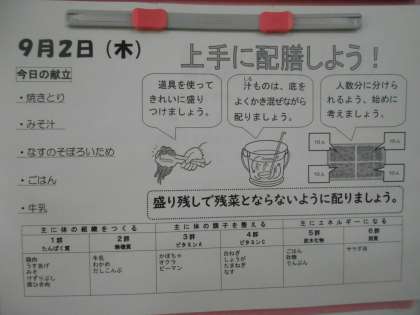 9月2日（木）
上手に配膳しよう！
今日の献立
・焼きとり
・みそ汁
・なすのそぼろいため
・ごはん
・牛乳
道具を使って
きれいに盛り
つけましょう。
汁ものは、底を
よくかき混ぜながら
配りましょう。
人数分に分けら
れるよう、始めに
考えましょう。
10人 10人
10人 10人
盛り残して残菜とならないように配りましょう。
主に体の組織をつくる 主に体の調子を整える 主にエネルギーになる
1群 2群 3群 4群 5群 6群
たんぱく質 無機質 ビタミンA ビタミンC 炭水化物 脂質
鶏肉 牛乳 かぼちゃ 白ねぎ ごはん サラダ油
うすあげ わかめ オクラ しょうが 砂糖
みそ だしこんぶ ピーマン たまねぎ でんぷん
けずりぶし なす
豚ひき肉